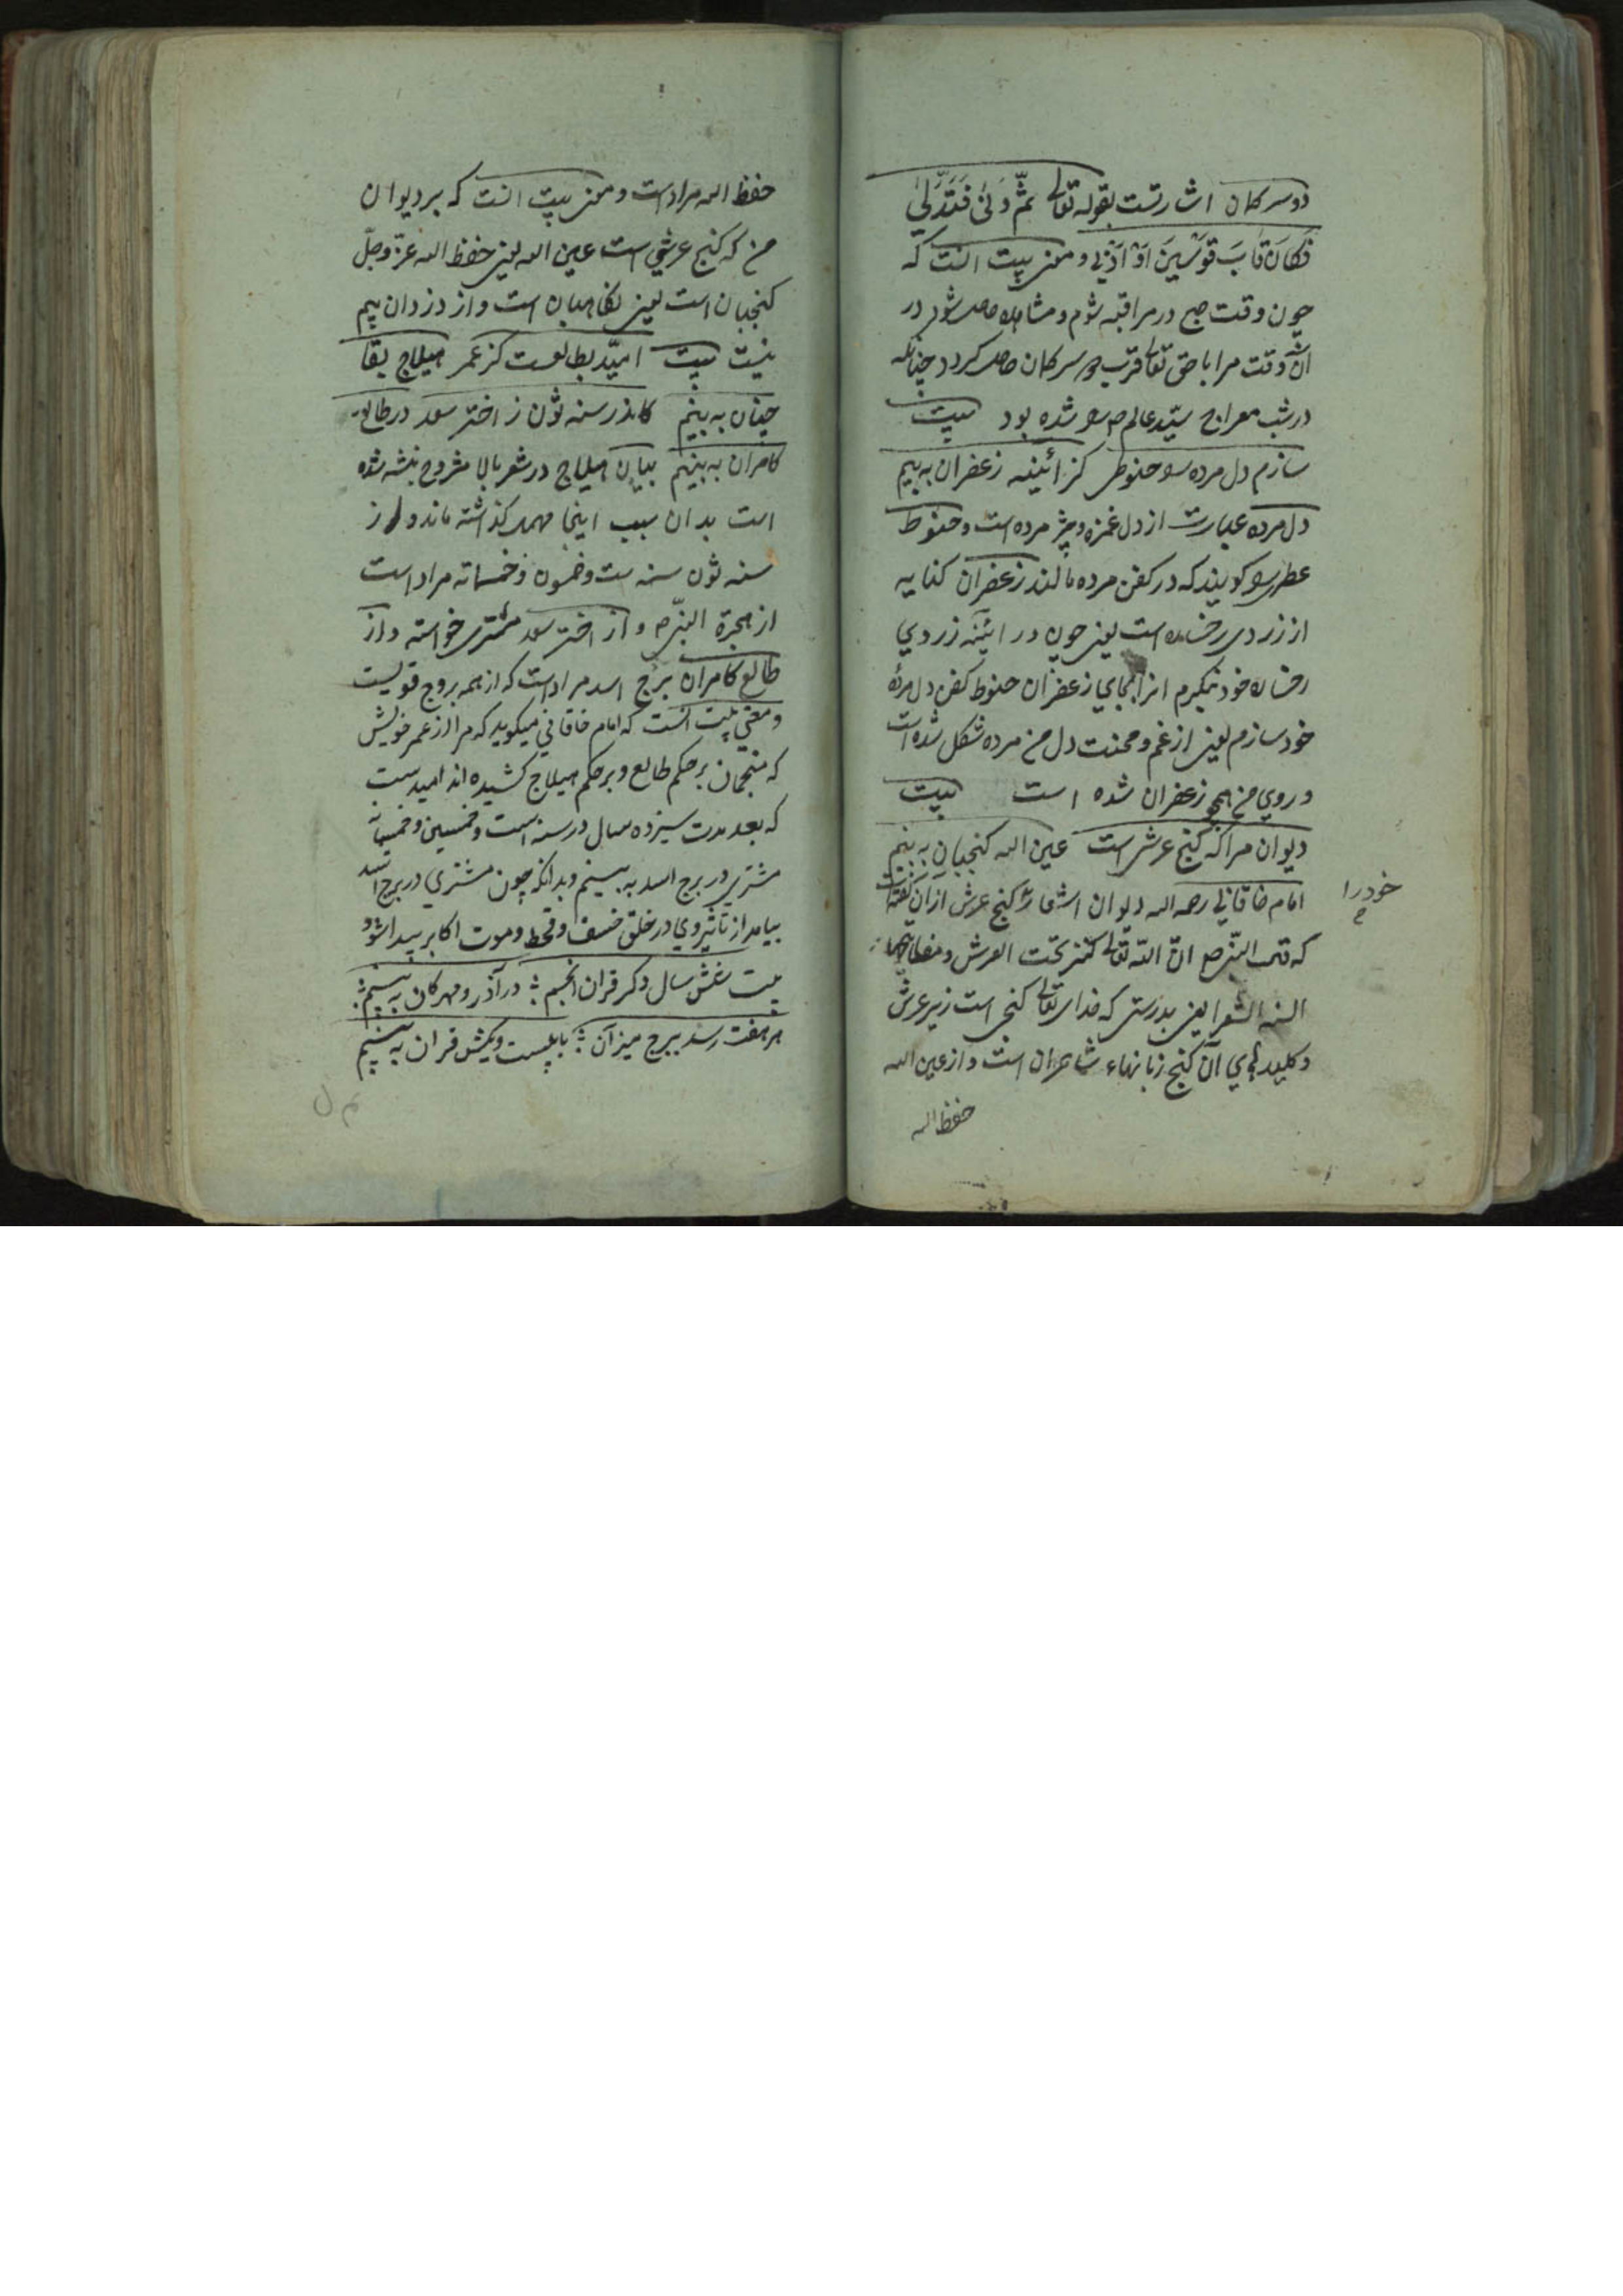 دو سر کمان اشارتست بقوله تعالی ثُمَّ دَنَیٰ فَتَدَلَّیٰ
فَکَانَ قَابَ قَوْسَینِ اَوْ اَدْنی و معنی بیت انست که
چون وقت صبح در مراقبه شوم و مشاهده حاصل شود در
ان وقت مرا با حق تعالی قرب دو سر کمان حاصل کردد چنانکه
در شب معراج سیّد عالم را شده بود بیت
سازم دل مرده را حنوطی کز ائینه زعفران به بینم
دل مرده عبارت از دل غمزه و مرده است و حنوط
عطر را کویند که در کفن مرده مالند زعفران کنایه
از زردی رخساره است یعنی چون در ائینه زردی
رخساره خود بنکرم انرا بجای زعفران حنوط کفن دل مردهٔ
خود سازم یعنی از غم و محنت دل من مرده شکل شده است
و روی من همچو زعفران شده است بیت
دیوان مرا که کنج عرش است عین الله کنجبان به بینم
امام خاقانی رحمه الله دیوان اشعار کنج عرش ازان کفته است
خود را
که قال النبی ص انّ اللّه تعالی کنز تحت العرش و مفاتیحها
السنه الشعرا یعنی بدرستی که خدای تعالی کنجی است زیر عرش
و کلیدهای آن کنج زبانهاء شاعران است و از عین الله
حفظ الله
حفظ الله مراد است و معنی بیت انست که بر دیوان
من که کنج عرشی است عین الله یعنی حفظ الله عزّ و جلّ
کنجبان است یعنی نکاهبان است و از دزدان بیم
نیست بیت امیّد بطالعست کز عمر هیلاج بقا
چنان به بینم کاندر سنه ثون ز اختر سعد در طالع
کامران به بینم بیان هیلاج در شعر بالا مشروح نبشته شده
است بدان سبب اینجا مهمل کذاشته ماند و از
سنه ثون سنه ست و خمسون و خمسماته مراد است
از هجرة النبی ص و از اختر سعد مشتری خواسته و از
طالع کامران برج اسد مراد است که از همه بروج قویست
و معنی بیت انست که امام خاقانی میکوید که مرا از عمر خویش
که منجمان بر حکم طالع و بر حکم هیلاج کشیده اند امید ست
که بعد مدت سیزده سال در سنه ست و خمسین و خمسمایه
مشتری در برج اسد به بینم و بدانکه چون مشتری در برج اسد
بیامد از تاثیر وی در خلق خسف و قحط و موت اکابر پیدا شود
بیت شش سال دکر قران انجم ؛ در آذر و مهرکان به بینم ؛
هر هفت رسد ببرج میزان ؛ با بیست و یکش قران به بینم